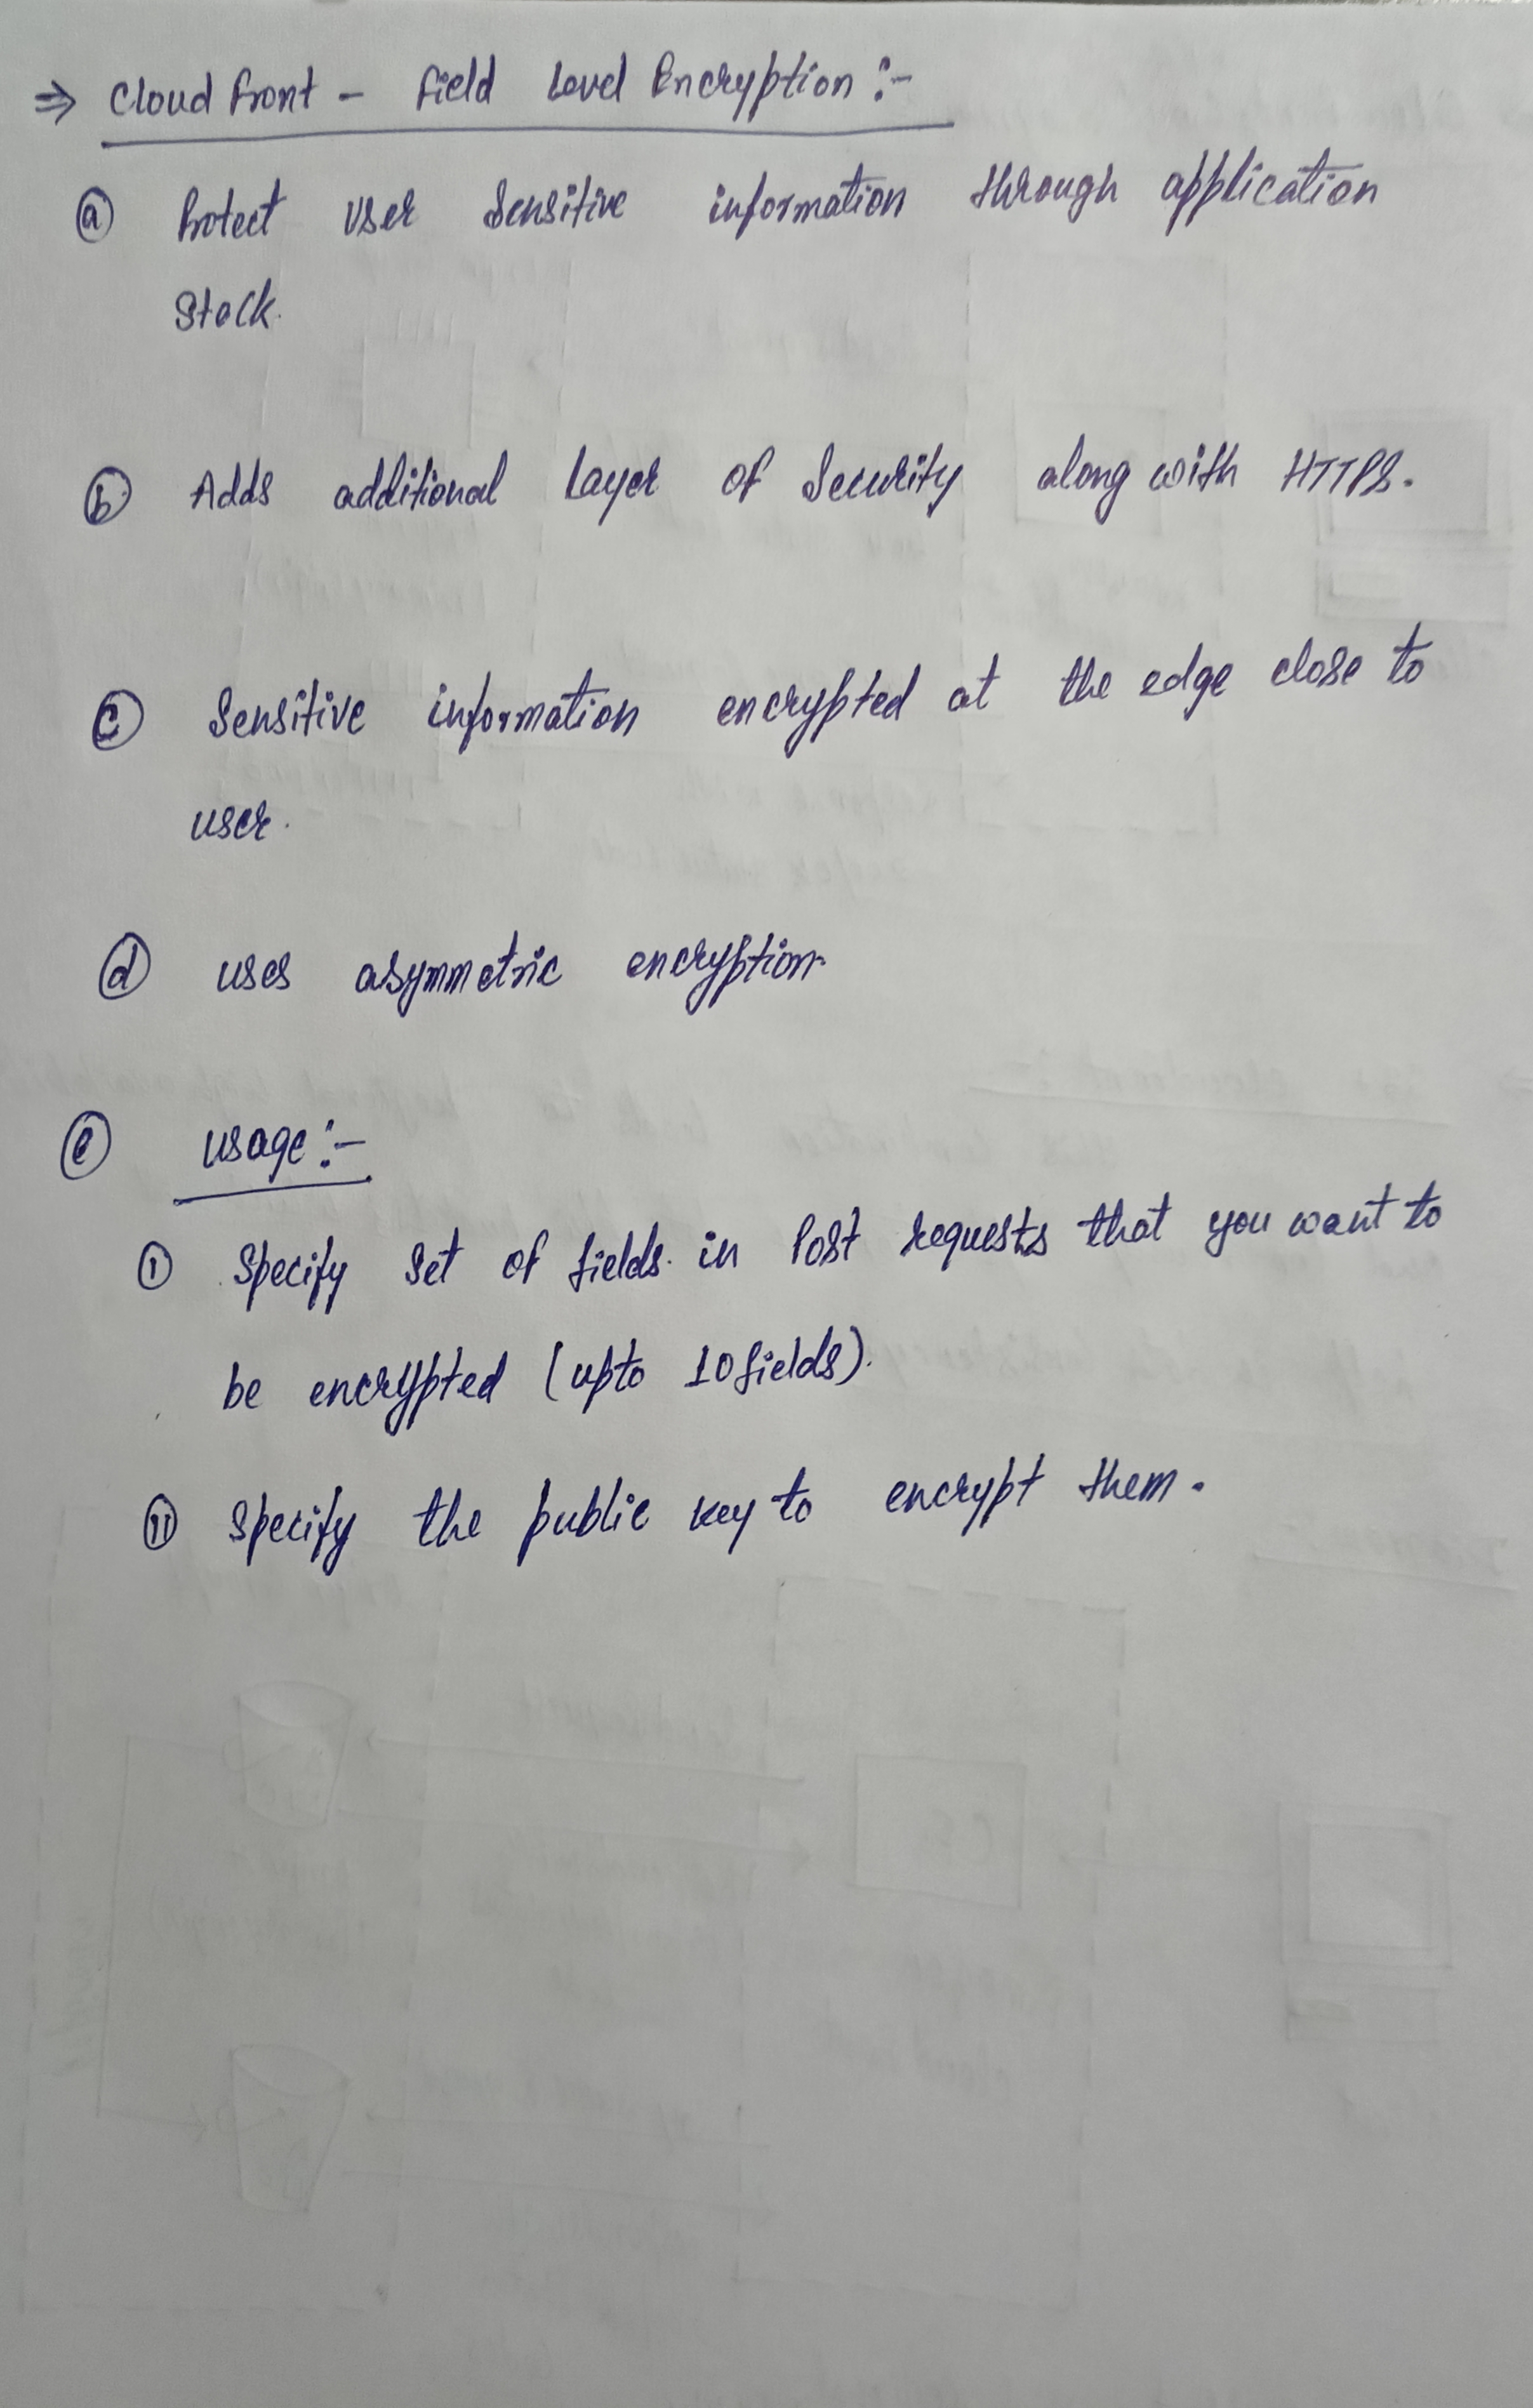 ⇒ Cloud Front - Field Level Encryption :-
ⓐ Protect User Sensitive information through application
Stack.
ⓑ Adds additional Layer of Security along with HTTPS.
ⓒ Sensitive information encrypted at the edge close to
user.
ⓓ uses asymmetric encryption
ⓔ usage :-
ⓘ Specify Set of fields in Post requests that you want to
be encrypted (upto 10 fields).
ⓘⓘ Specify the public key to encrypt them.